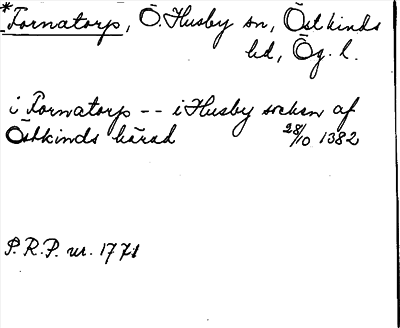 *Tornatorp, Ö. Husby sn, Östkinds
hd, Ög. l.
i Tornatorp -- i Husby soken af
Östkinds härad 28/10 1382
P.R.P. nr. 1771